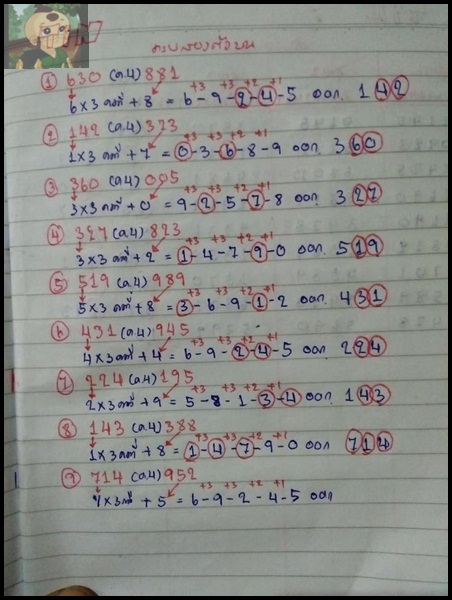 ครบสองตัวบน
① 630 (ค.4) 881
6 x 3 คงที่ + 8 = 6 - 9 - 2 - 4 - 5 ออก. 142
+3 +3 +2 +1
② 142 (ค.4) 323
1 x 3 คงที่ + 7 = 0 - 3 - 6 - 8 - 9 ออก. 360
+3 +3 +2 +1
③ 360 (ค.4) 005
3 x 3 คงที่ + 0 = 9 - 2 - 5 - 7 - 8 ออก. 327
+3 +3 +2 +1
④ 327 (ค.4) 823
3 x 3 คงที่ + 2 = 1 - 4 - 7 - 9 - 0 ออก. 519
+3 +3 +2 +1
⑤ 519 (ค.4) 989
5 x 3 คงที่ + 8 = 3 - 6 - 9 - 1 - 2 ออก. 431
+3 +3 +2 +1
⑥ 431 (ค.4) 945
4 x 3 คงที่ + 4 = 6 - 9 - 2 - 4 - 5 ออก. 224
+3 +3 +2 +1
⑦ 224 (ค.4) 195
2 x 3 คงที่ + 9 = 5 - 8 - 1 - 3 - 4 ออก. 143
+3 +3 +2 +1
⑧ 143 (ค.4) 388
1 x 3 คงที่ + 8 = 1 - 4 - 7 - 9 - 0 ออก. 714
+3 +3 +2 +1
⑨ 714 (ค.4) 952
7 x 3 คงที่ + 5 = 6 - 9 - 2 - 4 - 5 ออก